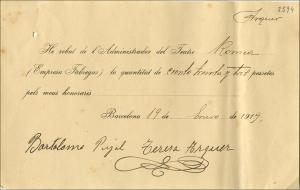 Arquer
2594
He rebut de l'Administrador del Teatre Romea
(Empresa Fàbregas) la quantitat de cento trenta y tres pessetes
pels meus honoraris
Barcelona 19 de Enero de 1919.
Bartolome Pujal Teresa Arquer